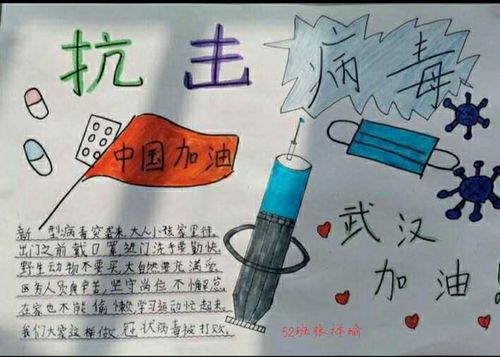 抗击病毒
中国加油
武汉
加油!
新 型病毒突袭来,大人小孩家里待。
出门之前戴口罩,进门洗手要勤快。
野生动物不要买,大自然要充满爱。
医务人员真辛苦,坚守岗位不懈怠。
在家也不能偷懒,学习运动忙起来。
我们大家这样做,冠状病毒被打败。
52班张